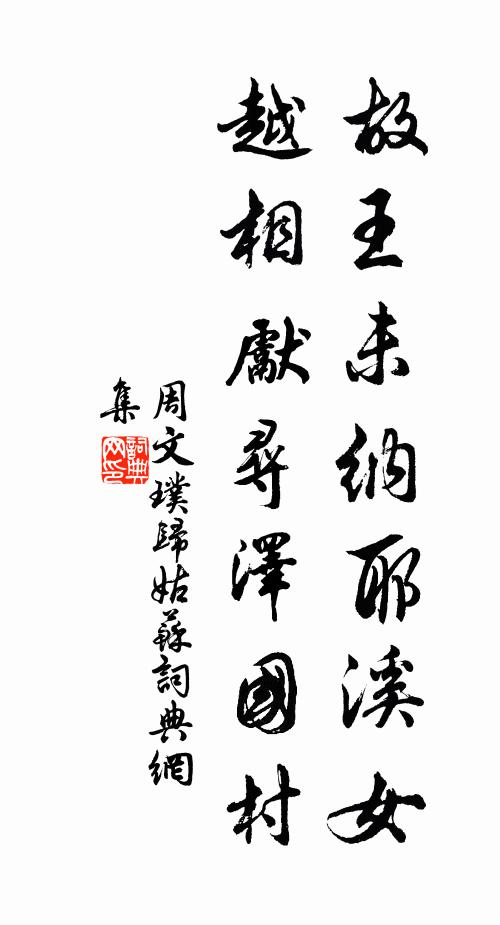 故王未納耶溪女
越相獻尋澤國村
周文璞歸姑蘇詞典網
集
詞典
网印